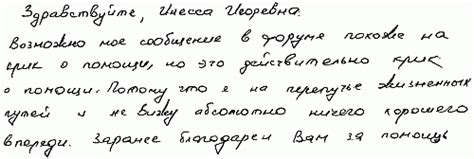 Здравствуйте, Инесса Игоревна.
Возможно мое сообщение в форуме похоже на
крик о помощи, но это действительно крик
о помощи. Потому что я на перепутье жизненных
путей и не вижу абсолютно ничего хорошего
впереди. Заранее благодарен Вам за помощь